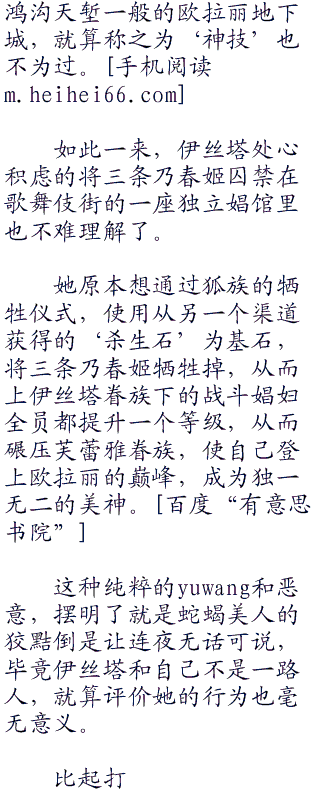 鸿沟天堑一般的欧拉丽地下
城，就算称之为‘神技’也
不为过。[手机阅读
m.heihei66.com]
如此一来，伊丝塔处心
积虑的将三条乃春姬囚禁在
歌舞伎街的一座独立娼馆里
也不难理解了。
她原本想通过狐族的牺
牲仪式，使用从另一个渠道
获得的‘杀生石’为基石，
将三条乃春姬牺牲掉，从而
上伊丝塔眷族下的战斗娼妇
全员都提升一个等级，从而
碾压芙蕾雅眷族，使自己登
上欧拉丽的巅峰，成为独一
无二的美神。[百度“有意思
书院”]
这种纯粹的yuwang和恶
意，摆明了就是蛇蝎美人的
狡黠倒是让连夜无话可说，
毕竟伊丝塔和自己不是一路
人，就算评价她的行为也毫
无意义。
比起打